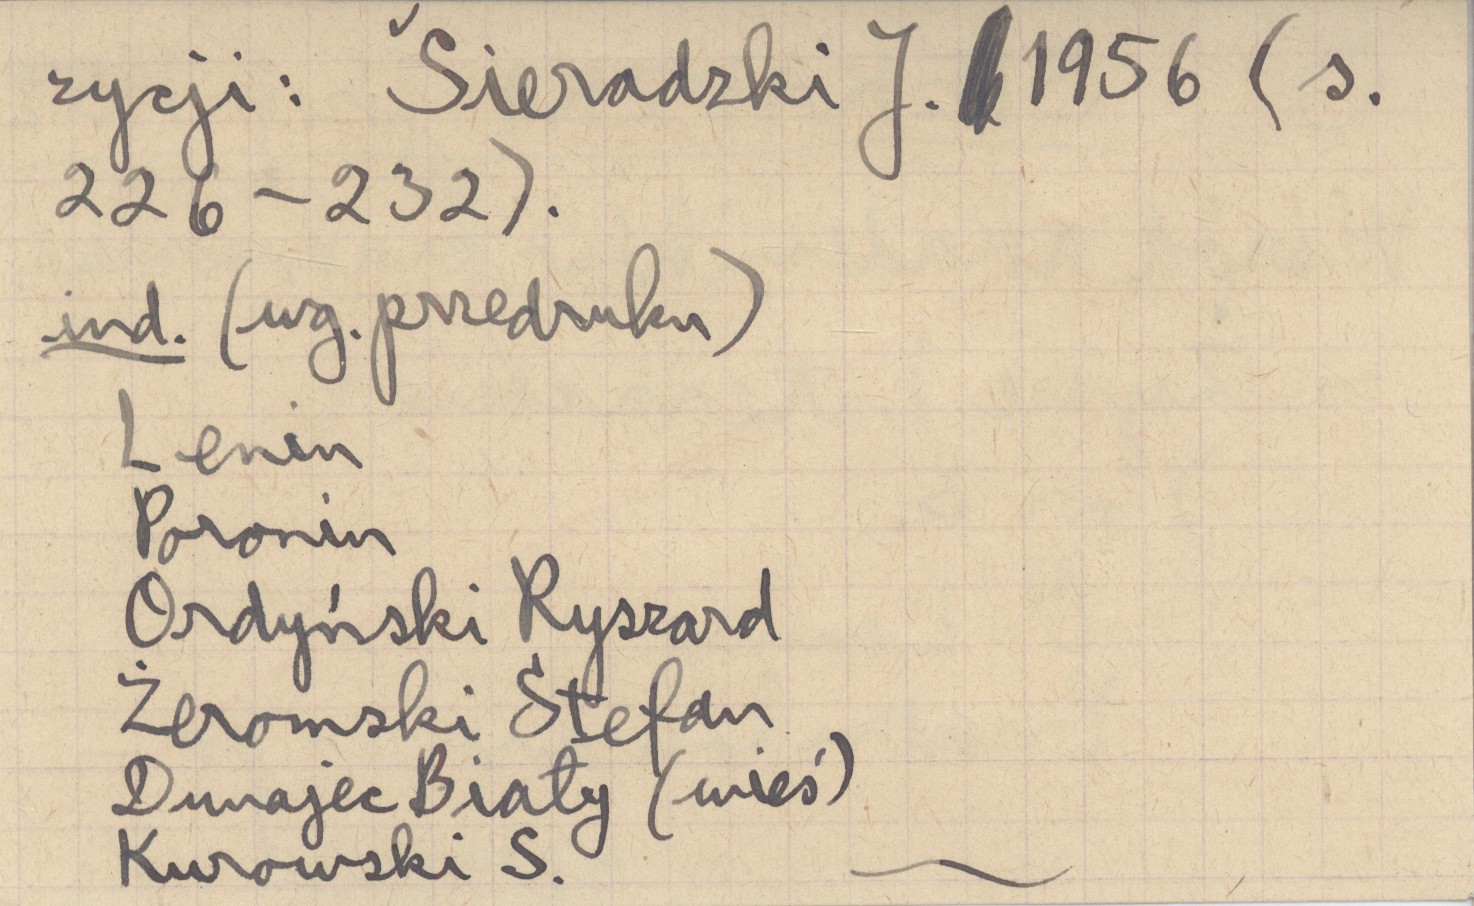 zycji: Sieradzki J. 1956 (s.
226-232).
ind. (wg. przedruku)
Lenin
Poronin
Ordyński Ryszard
Żeromski Stefan
Dunajec Biały (wieś)
Kurowski S.